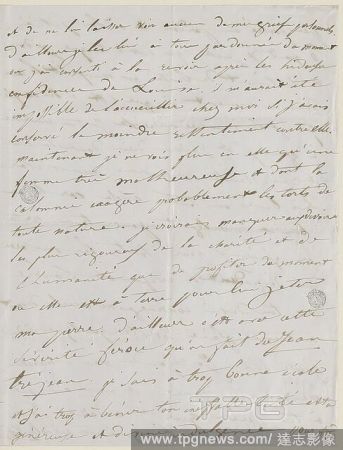 et de ne lui laisser voir aucun de mes griefs personnels
d'ailleurs je les lui ai tous pardonnés du moment
où j'ai consenti à la revoir après les
confidences de Louise. il m'aurait été
impossible de l'accueillir chez moi si j'avais
conservé le moindre ressentiment contre elle.
maintenant je ne vois plus en elle qu'une
femme très malheureuse et dont la
calomnie exagère probablement les torts de
toute nature. je croirais manquer aux devoirs
les plus rigoureux de la charité et de
l'humanité que de profiter du moment
où elle est à terre pour lui jeter
ma pierre. d'ailleurs c'est avec cette
sévérité féroce qu'on fait de Jean
je suis à trop bonne école
et j'ai trop à bénir ton affection
généreuse et
TPG
www.tpgnews.com / 達志影像